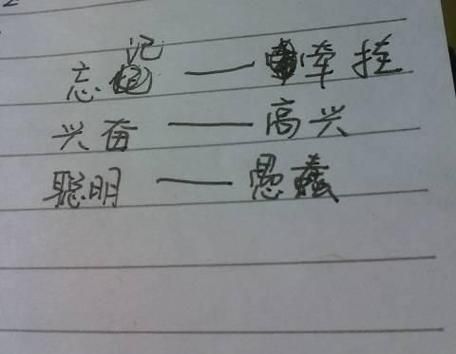 忘记——牵挂
兴奋——高兴
聪明——愚蠢